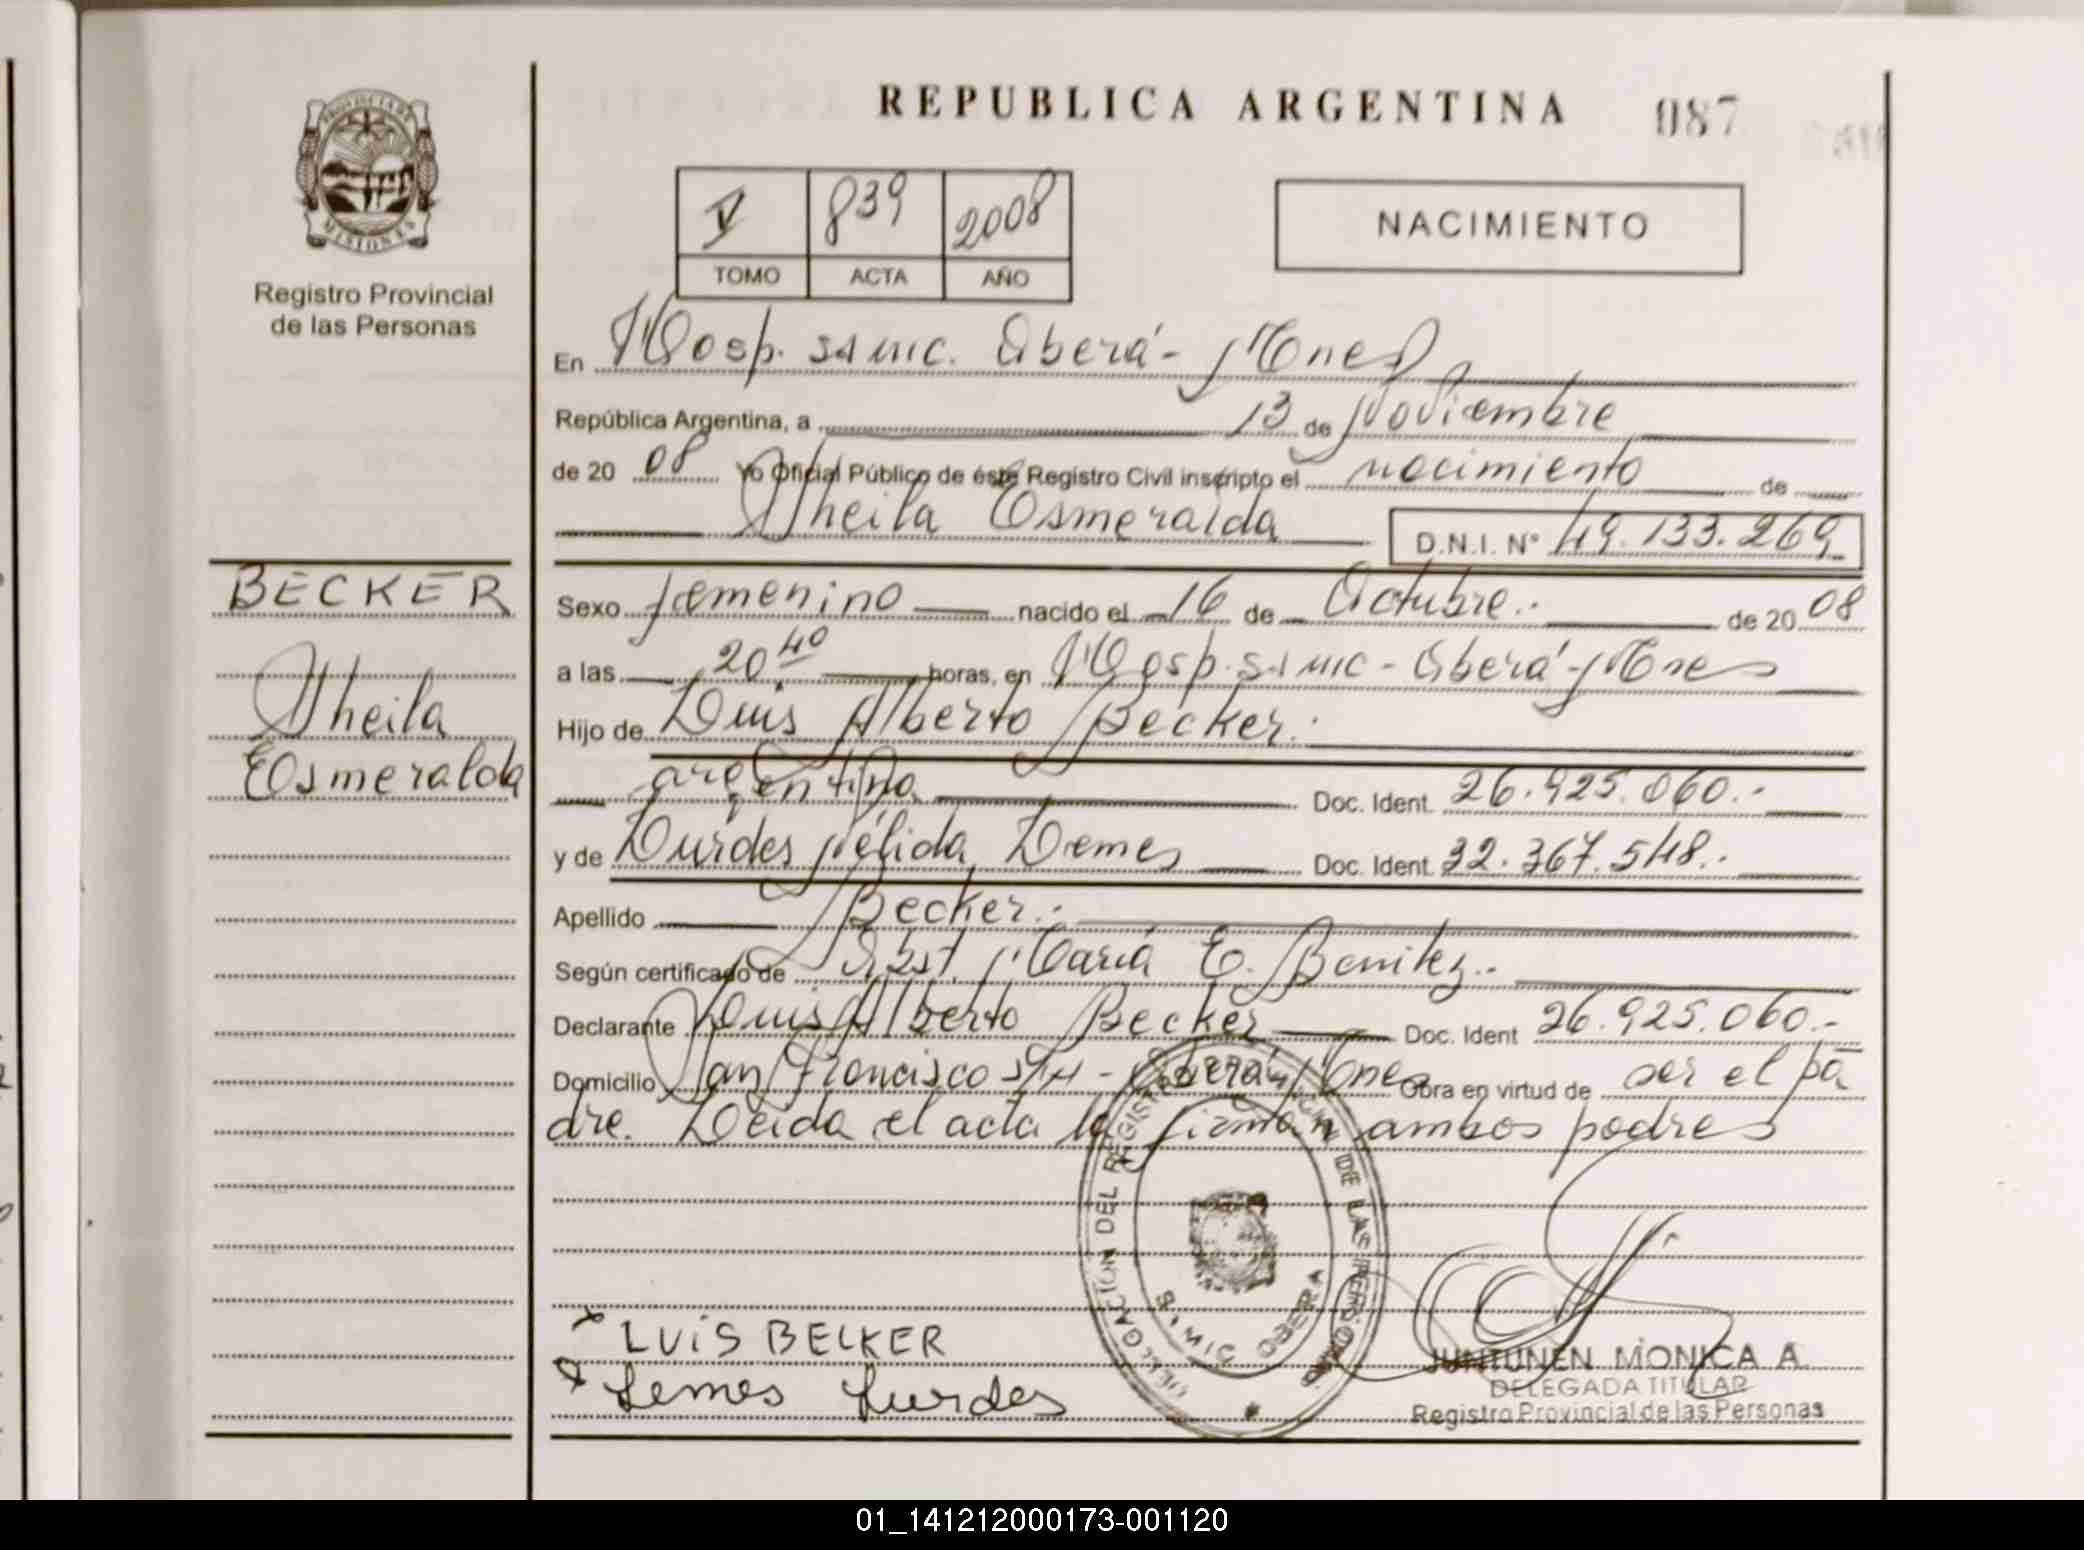 REPUBLICA ARGENTINA 087
PROVINCIA DE MISIONES
Registro Provincial
de las Personas
V 839 2008
TOMO ACTA AÑO
NACIMIENTO
En Hosp. samic. Oberá - Mnes
República Argentina, a 13 de Noviembre
de 20 08 Yo Oficial Público de éste Registro Civil inscripto el nacimiento de
Sheila Esmeralda D.N.I. N° 49.133.269
BECKER
Sheila
Esmeralda
Sexo femenino nacido el 16 de Octubre.. de 20 08
a las 20.40 horas, en Hosp. samic - Oberá - Mnes
Hijo de Luis Alberto Becker.
argentino Doc. Ident. 26.925.060.-
y de Lurdes Nélida Lemes Doc. Ident. 32.367.548..
Apellido Becker.-
Según certificado de Obst. María E. Benitez..
Declarante Luis Alberto Becker Doc. Ident 26.925.060.-
Domicilio San Francisco S/N - Oberá Mnes Obra en virtud de ser el pa
dre. Leida el acta la firman ambos padres
DELEGACIÓN DEL REGISTRO DE LAS PERSONAS
SAMIC OBERA
x LUIS BECKER
x Lemes Lurdes
JUNTUNEN MONICA A.
DELEGADA TITULAR
Registro Provincial de las Personas
01_141212000173-001120